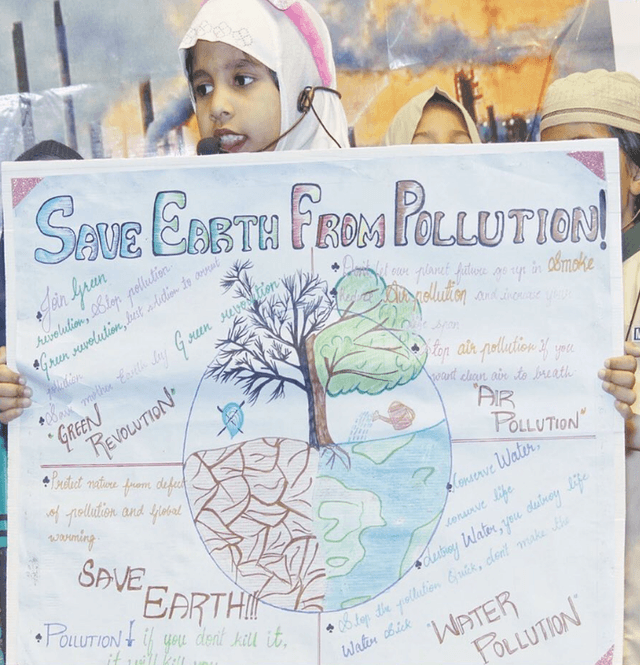 SAVE EARTH FROM POLLUTION!
Join Green
revolution, Stop pollution
Green revolution, best solution to arrest
pollution
Save mother Earth by Green revolution
"GREEN
REVOLUTION"
Don't let our planet future go up in Smoke
Reduce Air pollution and increase your
life span
Stop air pollution if you
want clean air to breath.
"AIR
POLLUTION"
Protect nature from defect
of pollution and global
warming.
SAVE
EARTH!!!
POLLUTION! if you don't kill it,
it will kill you
Conserve Water,
conserve life
destroy Water, you destroy life
Stop the pollution Quick, dont make the
Water Sick
"WATER
POLLUTION"